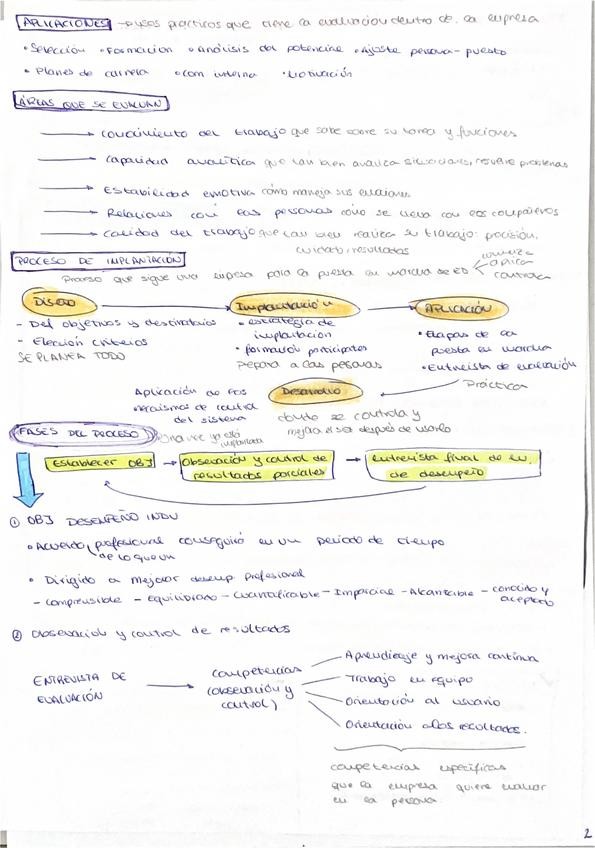 APLICACIONES → usos prácticos que tiene la evaluación dentro de la empresa
• Selección • Formación • Análisis del potencial • Ajuste persona-puesto
• Planes de carrera • Com interna • Motivación
ÁREAS QUE SE EVALÚAN
→ Conocimiento del trabajo que sabe sobre su tarea y funciones
→ Capacidad analítica que tan bien analiza situaciones, resuelve problemas
→ Estabilidad emotiva cómo maneja sus emociones
→ Relaciones con las personas cómo se lleva con los compañeros
→ Calidad del trabajo que tan bien realiza su trabajo: precisión,
cuidado, resultados
PROCESO DE IMPLANTACIÓN
Proceso que sigue una empresa para la puesta en marcha se ED
aplica
controla
DISEÑO → Implantación → APLICACIÓN
- Del objetivos y destinatarios
- Elección criterios
SE PLANEA TODO
• estrategia de
implantación
• formación participantes
Prepara a las personas
• Etapas de la
puesta en marcha
• Entrevista de evaluación
Práctica
Desarrollo
Aplicación de los
mecanismos de control
del sistema
donde se controla y
mejora el ser después de usarlo
FASES DEL PROCESO
Una vez ya está
implantada
Establecer OBJ → Observación y control de
resultados parciales → Entrevista final de ev.
de desempeño
① OBJ DESEMPEÑO INDV
• Acuerdo profesional conseguirá en un periodo de tiempo
de lo que un
• Dirigido a mejorar desemp profesional
- Comprensible - Equilibrado - Cuantificable - Imparcial - Alcanzable - conocido y
aceptado
② Observación y control de resultados
ENTREVISTA DE
EVALUACIÓN
→ Competencias
(observación y
control)
Aprendizaje y mejora continua
Trabajo en equipo
Orientación al usuario
Orientación a los resultados.
competencias específicas
que la empresa quiere evaluar
en la persona
2